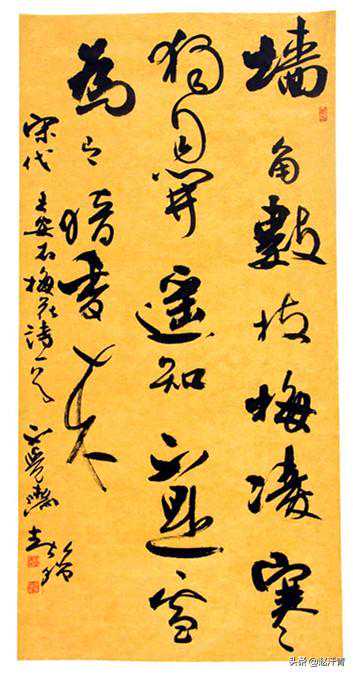 墙角數枝梅凌寒
獨自開遥知不是雪
為有暗香来
宋代王安石梅花诗一首
头条 @赵汗青